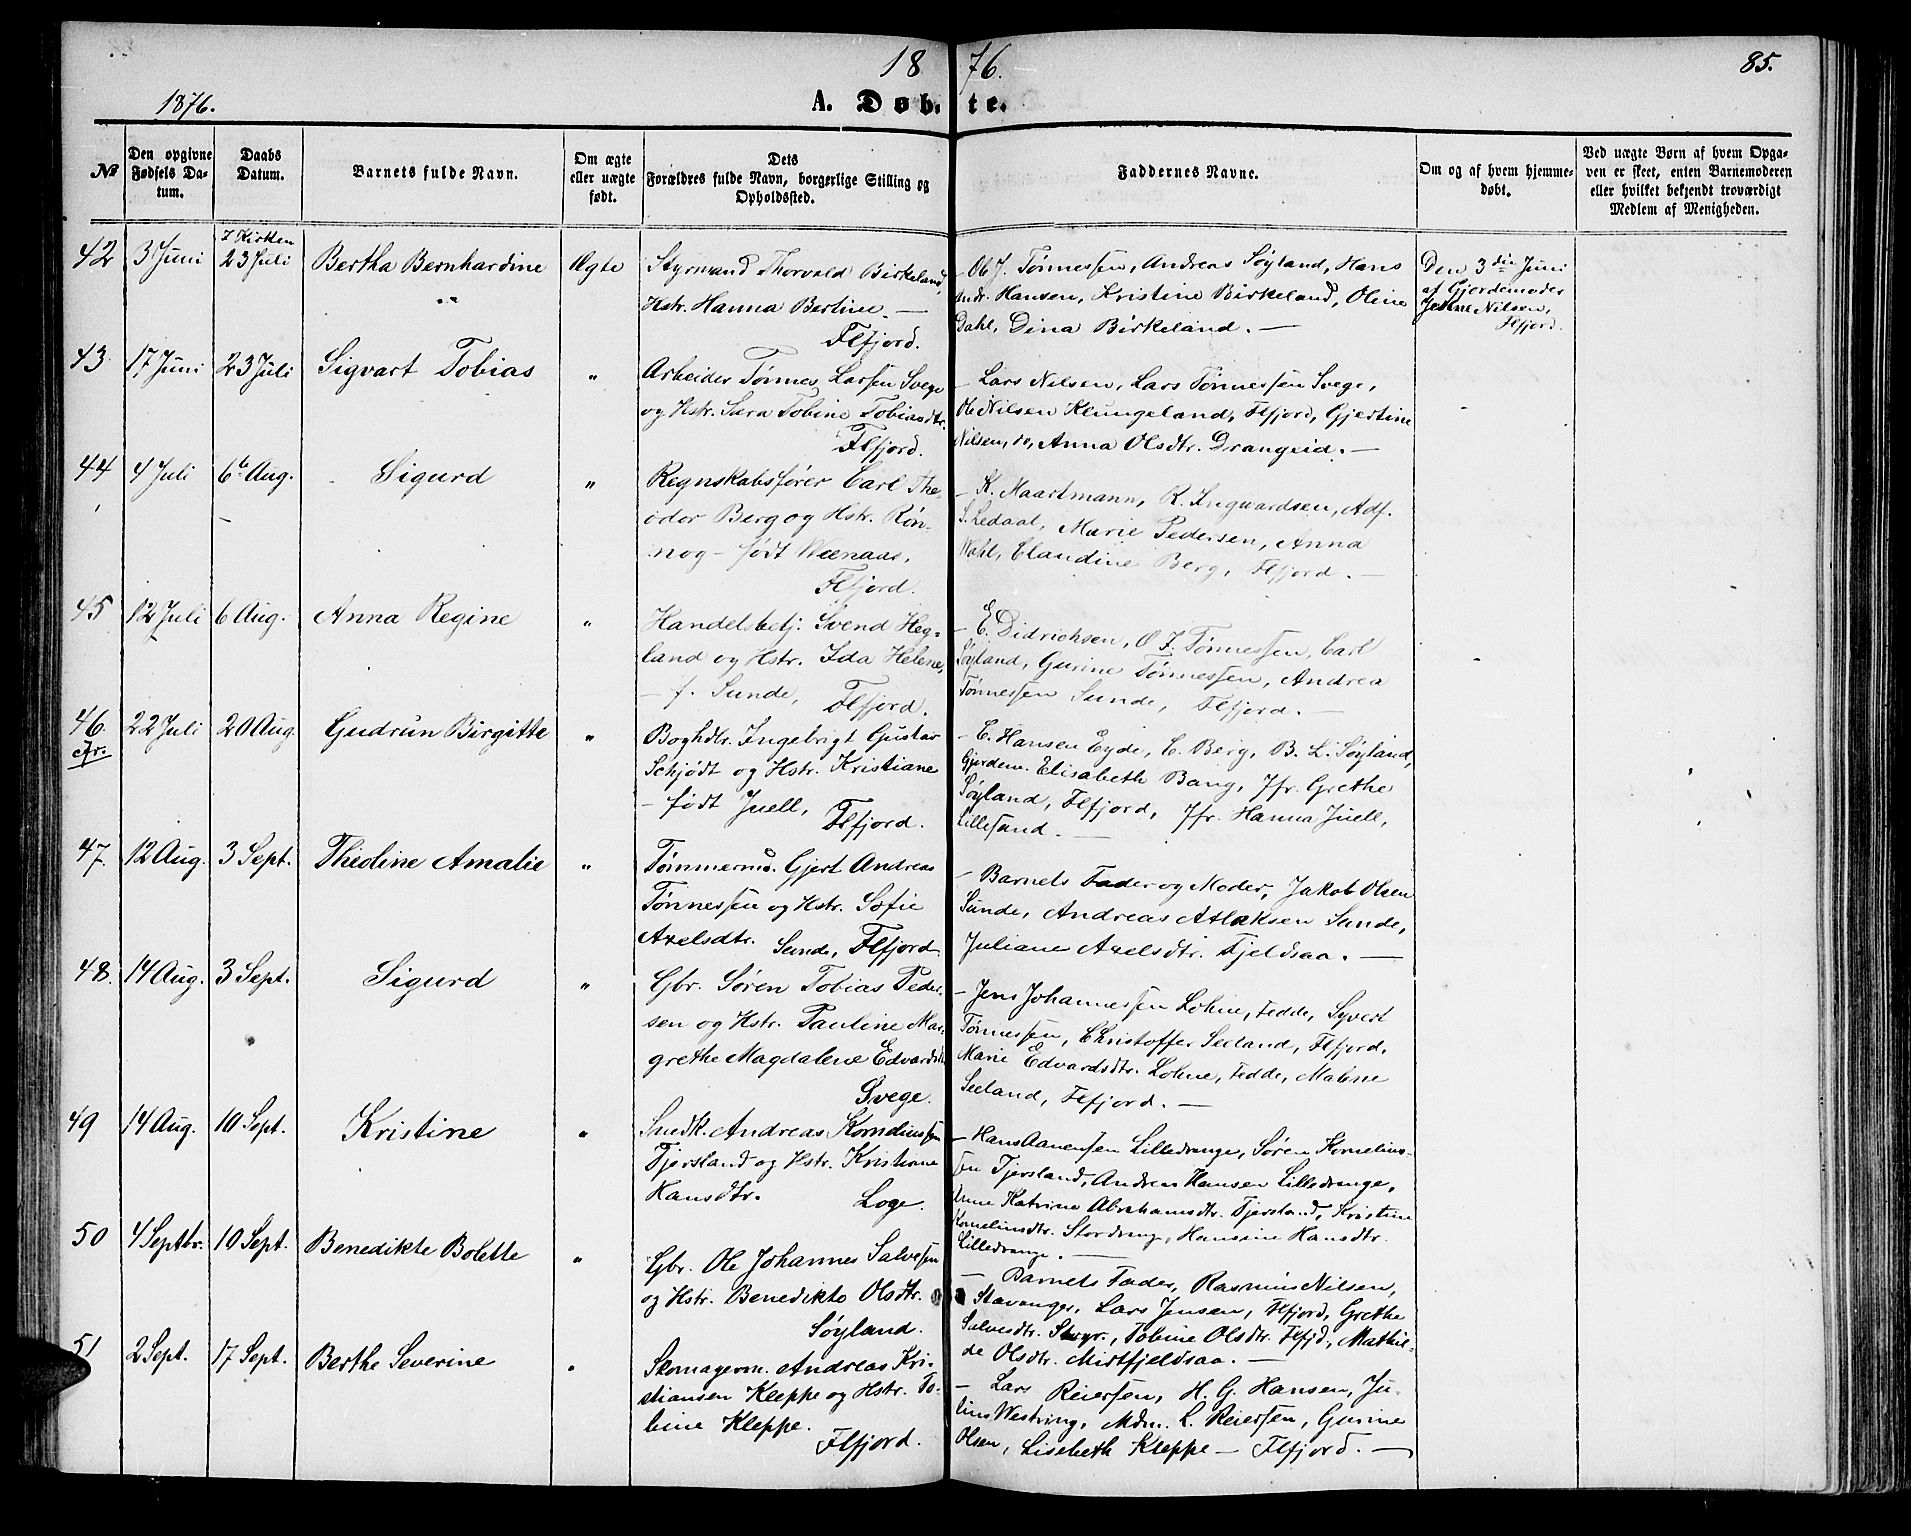 1876.
1876.
85.
A. Døbte.
No
Den opgivne Fødsels Datum.
Daabs Datum.
Barnets fulde Navn.
Om ægte eller uægte født.
Dets Forældres fulde Navn, borgerlige Stilling og Opholdssted.
Faddernes Navne.
Om og af hvem hjemmedøbt.
Ved uægte Børn af hvem Opgaven er skeet, enten Barnemoderen eller hvilket bekjendt troværdigt Medlem af Menigheden.
42
3 Juni
I Kirken
23 Juli
Bertha Bernhardine
Ægte
Styrmand Thorvald Birkeland,
Hstr. Hanna Bertine. —
Flfjord.
— Ol. J. Tønnessen, Andreas Søyland, Hans
Andr. Hansen, Kristine Birkeland, Oline
Dahl, Dina Birkeland. —
Den 3die Juni
af Gjordemoder
Nilsen,
Flfjord.
43
17 Juni
23 Juli
Sigvart Tobias
"
Arbeider Tønnes Larsen Svege
og Hstr. Sara Tobine Tobiasdtr.
Flfjord.
— Lars Nilsen, Lars Tønnessen Svege,
Ole Nilsen Klungeland, Flfjord, Gjertine
Nilsen, do, Anna Olsdtr. Drangeid. —
44
4 Juli
6te Aug.
Sigurd
"
Regnskabsfører Carl The-
odor Berg og Hstr. Røn-
nog — født Weenaas,
Flfjord.
— K. Maartmann, R. Inguardsen, Adf.
S. Ledaal, Marie Pedersen, Anna
Wahl, Claudine Berg, Flfjord. —
45
12 Juli
6 Aug.
Anna Regine
"
Handelsbetj: Svend Heg-
land og Hstr. Ida Helene,
— f. Sunde, Flfjord.
— E. Didrichsen, O J. Tønnessen, Carl
Søyland, Gurine Tønnessen, Andrea
Tønnessen Sunde, Flfjord. —
46
cfr.
22 Juli
20 Aug.
Gudrun Birgitte
"
Boghdlr. Ingebrigt Gustav
Schjødt og Hstr. Kristiane
— født Juell, Flfjord.
— E. Hansen Eyde, C. Berg, B. L. Søyland,
Gjordem. Elisabeth Bang, Jfr. Grethe
Søyland, Flfjord, Jfr. Hanna Juell,
Lillesand. —
47.
12 Aug.
3 Sept.
Theoline Amalie
"
Tømmermd. Gjert Andreas
Tønnessen og Hstr. Sofie
Axelsdtr. Sunde, Flfjord
— Barnets Fader og Moder, Jakob Olsen
Sunde, Andreas Atlaksen Sunde,
Juliane Axelsdtr. Fjeldsaa. —
48.
14 Aug.
3 Sept.
Sigurd
"
Gbr. Søren Tobias Peder-
sen og Hstr. Pauline Mar-
grethe Magdalene Edvardsdtr.
Svege.
— Jens Johannessen Lohne, Fedde, Syvert
Tønnessen, Christoffer Seeland, Flfjord,
Marie Edvardsdtr. Lohne, Fedde, Malene
Seeland, Flfjord. —
49
14 Aug.
10 Sept.
Kristine
"
Snedk. Andreas Korneliussen
Tjersland og Hstr. Kristiane
Hansdtr. Loge.
— Hans Aanensen Lilledrange, Søren Kornelius-
sen Tjersland, Andreas Hansen Lilledrange,
Anne Katrine Abrahamsdtr. Tjersland, Kristine
Korneliusdtr. Stordrange, Hansine Hansdtr.
Lilledrange. —
50
4 Septbr.
10 Sept.
Benedikte Bolette
"
Gbr. Ole Johannes Salvesen
og Hstr. Benedikte Olsdtr.
Søyland.
— Barnets Fader, Rasmus Nilsen,
Stavanger, Lars Jensen, Flfjord, Grethe
Salvesdtr. Stvgr., Tobine Olsdtr. Flfjd., Mathil-
de Olsdtr. Midtfjeldsaa. —
51
2 Sept.
17 Sept.
Berthe Severine
"
Skomagerm. Andreas Kri-
stiansen Kleppe og Hstr. To-
bine Kleppe.
Flfjord.
— Lars Reiersen, H. G. Hansen, Ju-
lius Westring, Mdm. L. Reiersen, Gurine
Olsen, Lisebeth Kleppe — Flfjord. —